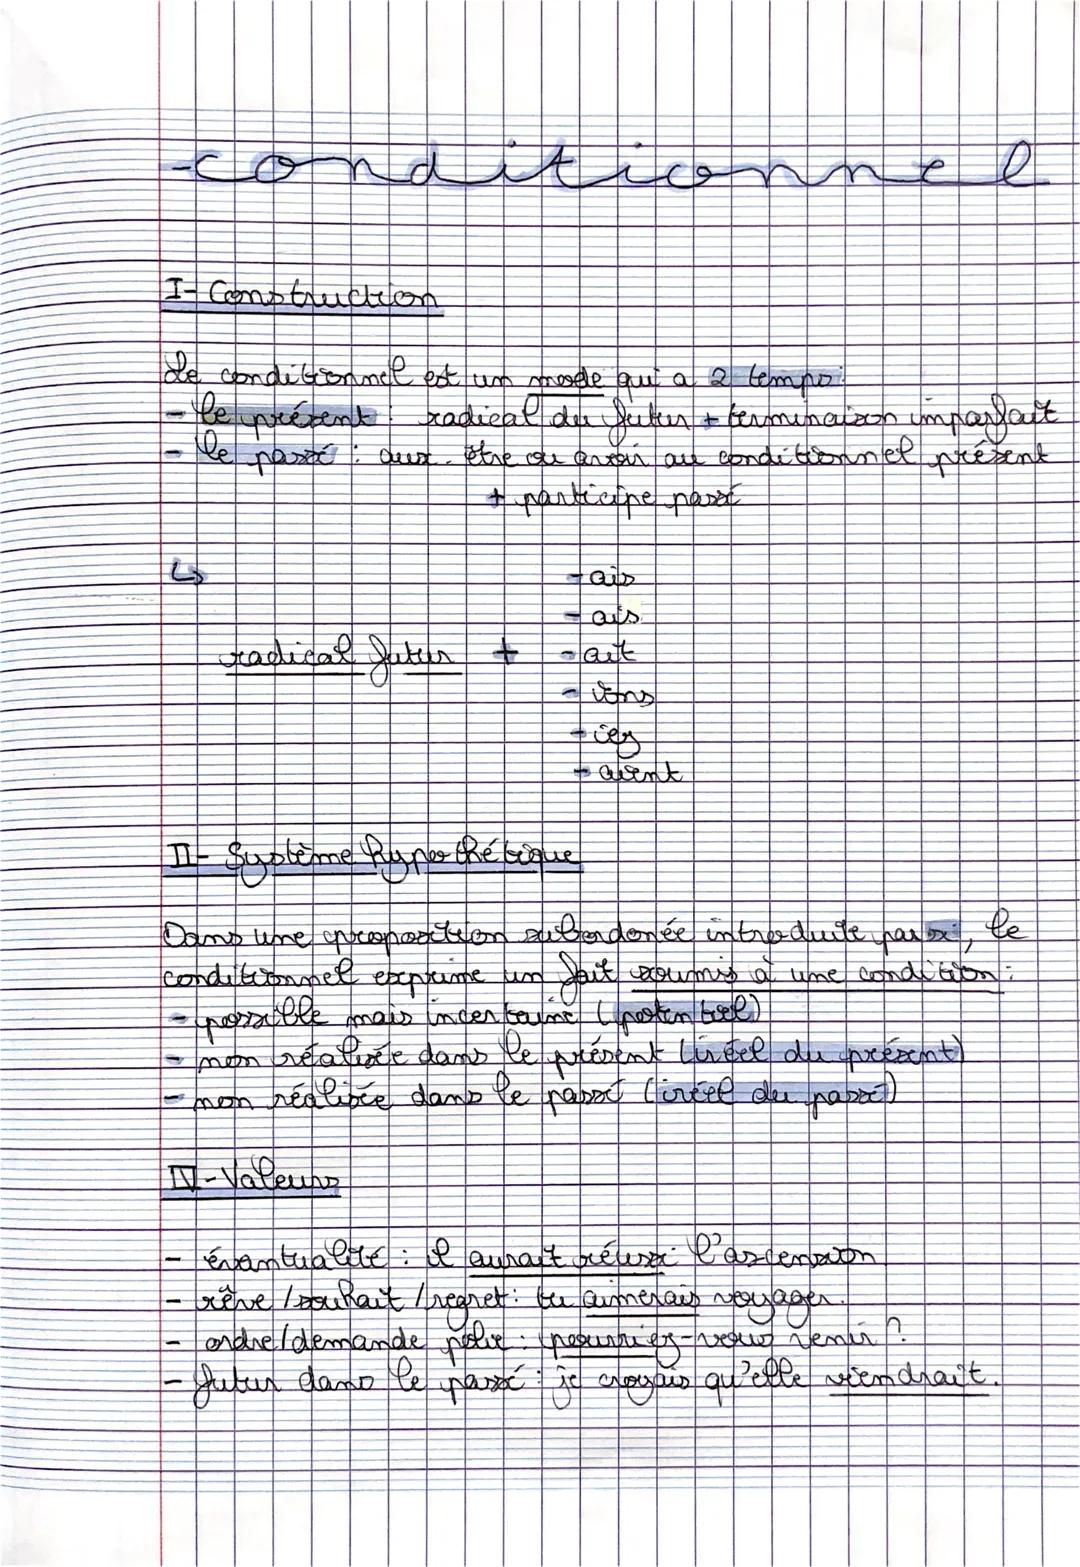 conditionnel
I- Construction
Le conditionnel est un mode qui a 2 temps:
- le présent : radical du futur + terminaison imparfait
- le passé : aux. être ou avoir au conditionnel présent
+ participe passé
↳
- ais
- ais
radical futur + - ait
- ions
- iez
- aient
II- Système hypothétique
Dans une proposition subordonée introduite par si, le
conditionnel exprime un fait soumis à une condition :
- possible mais incertaine (potentiel)
- non réalisée dans le présent (iréel du présent)
- non réalisée dans le passé (iréel du passé)
IV- Valeurs
- évantualité : il aurait réussi l'ascension.
- rêve / souhait / regret : tu aimerais voyager.
- ordre/demande polie : pourriez-vous venir ?
- futur dans le passé : je croyais qu'elle viendrait.